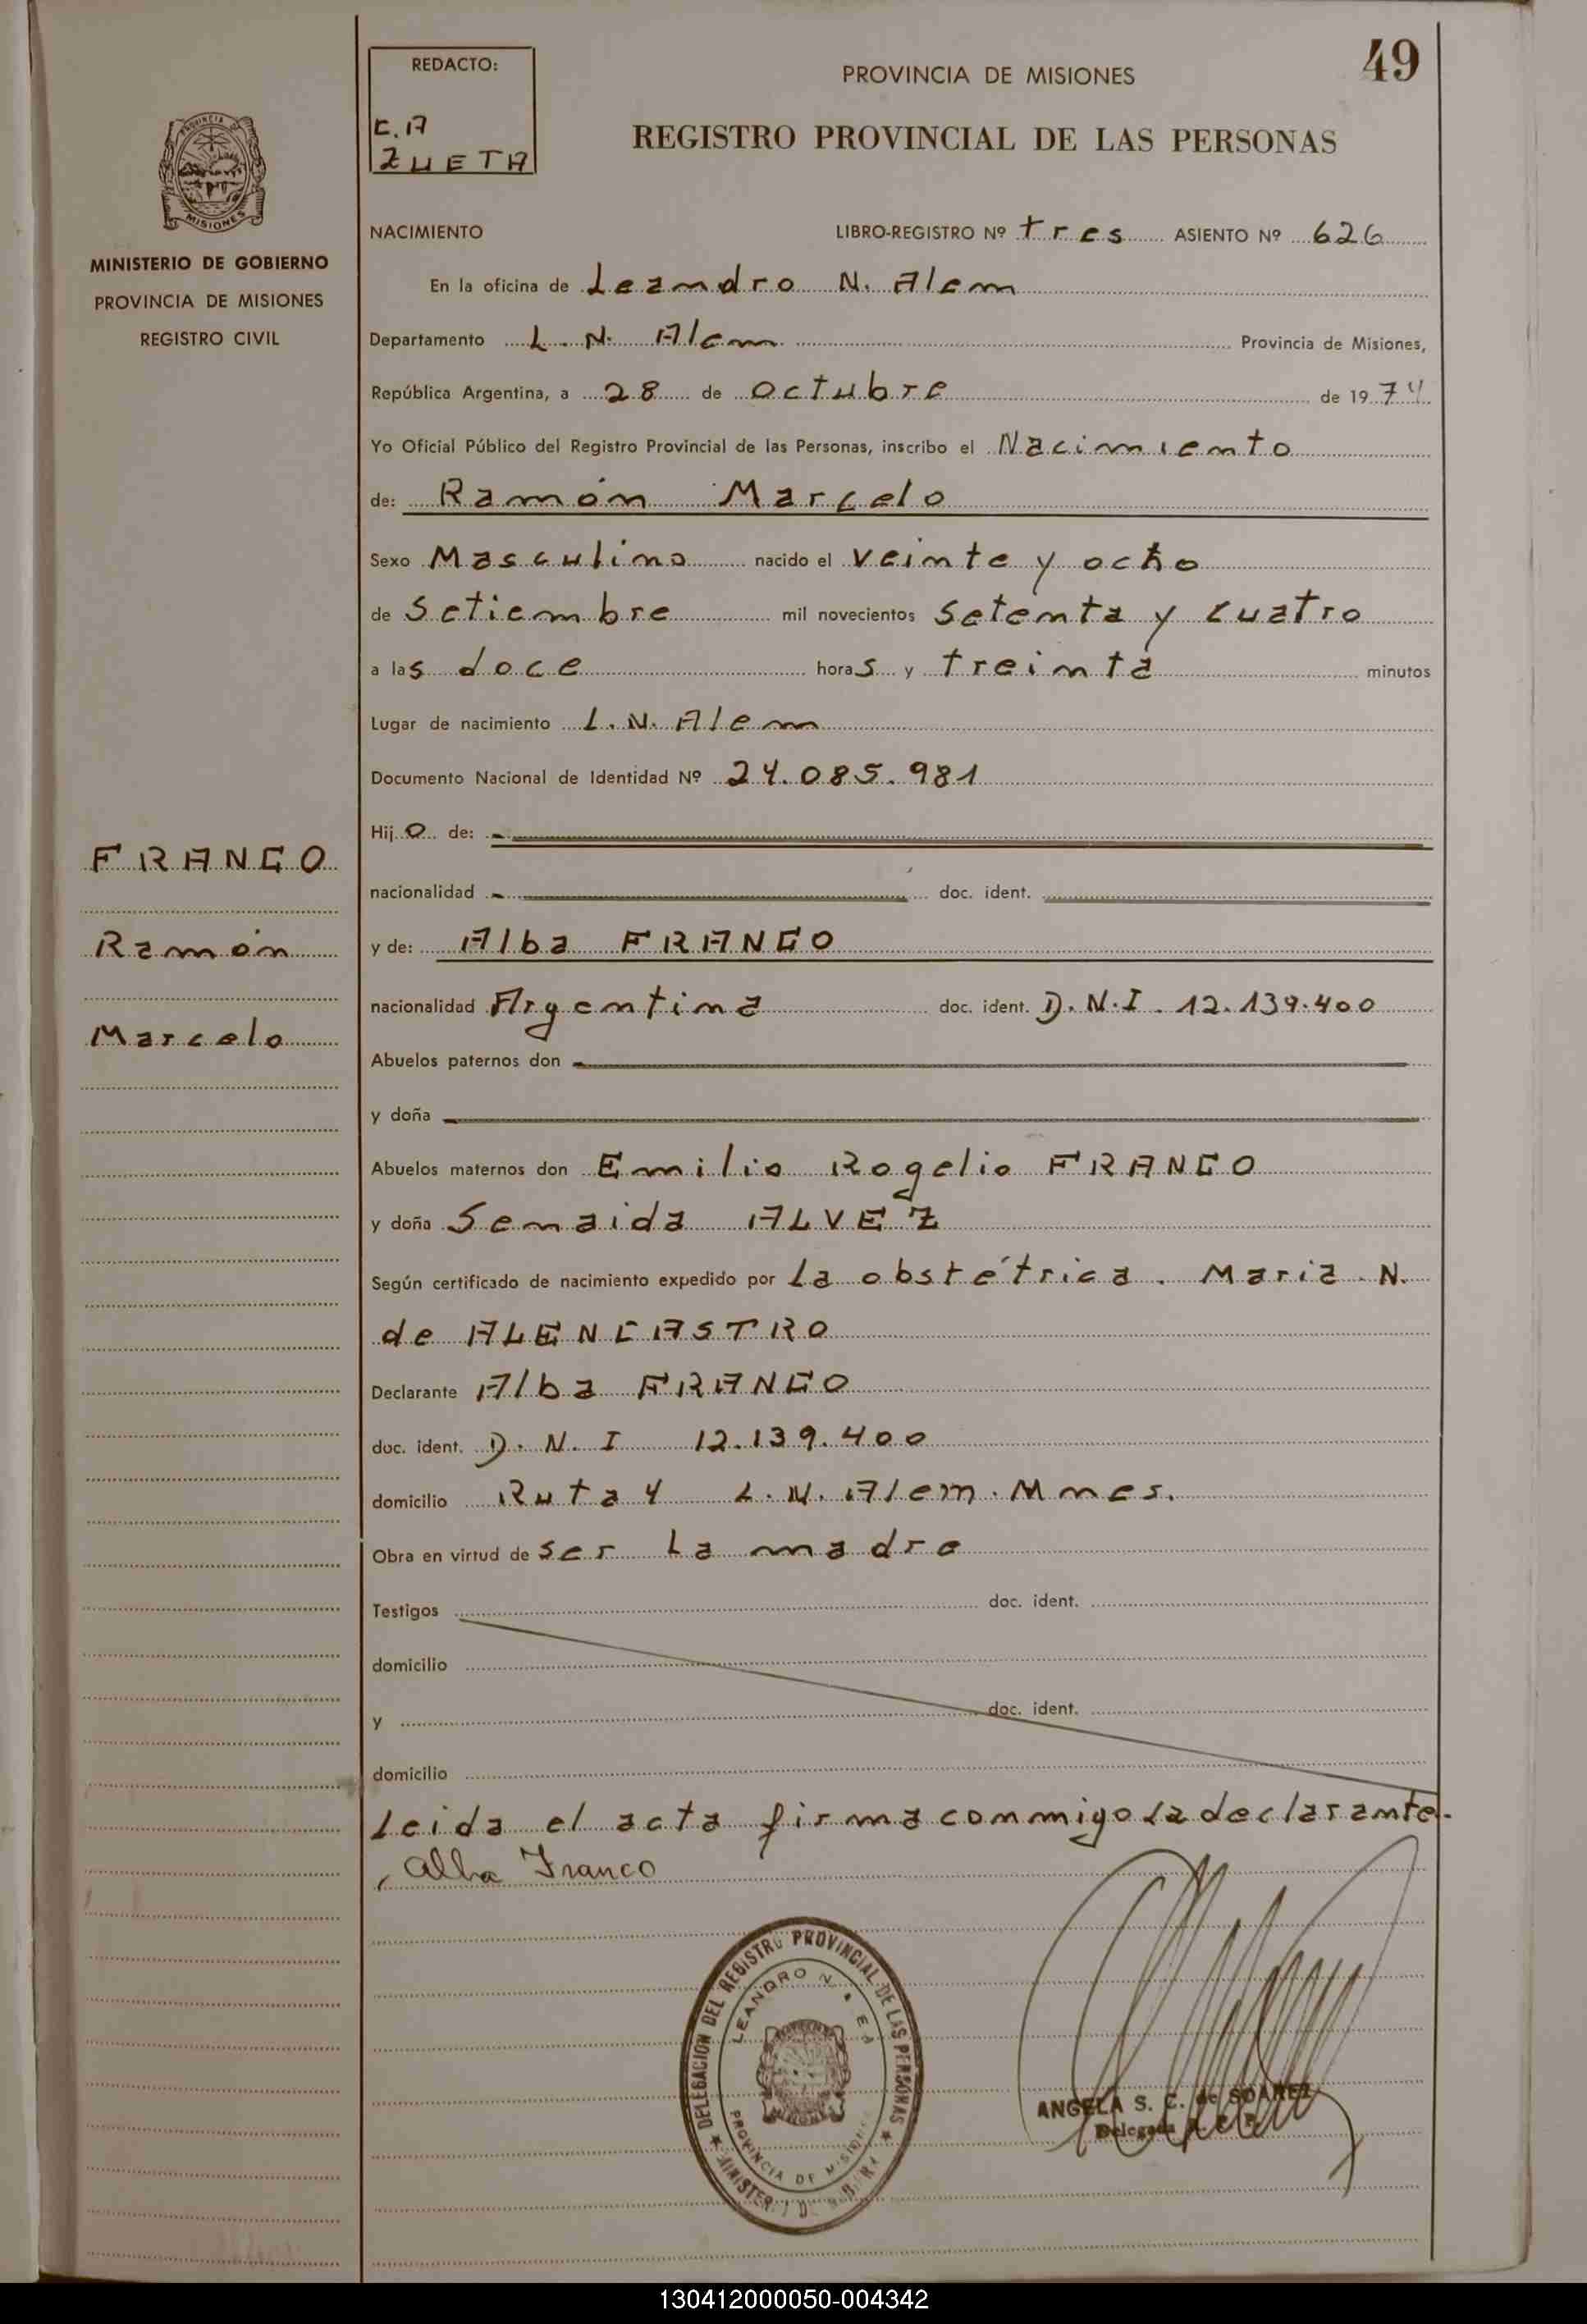 49
REDACTO:
C.A
ZUETA
PROVINCIA DE MISIONES
REGISTRO PROVINCIAL DE LAS PERSONAS
PROVINCIA DE
MISIONES
MINISTERIO DE GOBIERNO
PROVINCIA DE MISIONES
REGISTRO CIVIL
NACIMIENTO LIBRO-REGISTRO Nº tres ASIENTO Nº 626
En la oficina de Leandro N. Alem
Departamento L. N. Alem Provincia de Misiones,
República Argentina, a 28 de octubre de 1974
Yo Oficial Público del Registro Provincial de las Personas, inscribo el Nacimiento
de: Ramón Marcelo
Sexo Masculino nacido el veinte y ocho
de Setiembre mil novecientos setenta y cuatro
a las doce horas y treinta minutos
Lugar de nacimiento L. N. Alem
Documento Nacional de Identidad Nº 24.085.981
Hijo de:
nacionalidad doc. ident.
y de: Alba FRANCO
nacionalidad Argentina doc. ident. D.N.I. 12.139.400
Abuelos paternos don
y doña
Abuelos maternos don Emilio Rogelio FRANCO
y doña Senaida ALVEZ
Según certificado de nacimiento expedido por La obstétrica. Maria N.
de ALENCASTRO
Declarante Alba FRANCO
doc. ident. D. N. I 12.139.400
domicilio Ruta 4 L. N. Alem. Mnes.
Obra en virtud de ser La madre
Testigos doc. ident.
domicilio
y doc. ident.
domicilio
Leida el acta firma conmigo La declarante.
Alba Franco
FRANCO
Ramón
Marcelo
DELEGACION DEL REGISTRO PROVINCIAL DE LAS PERSONAS
LEANDRO N.
PROVINCIA DE MISIONES
ANGELA S. C. de SOAREZ
Delegada
130412000050-004342